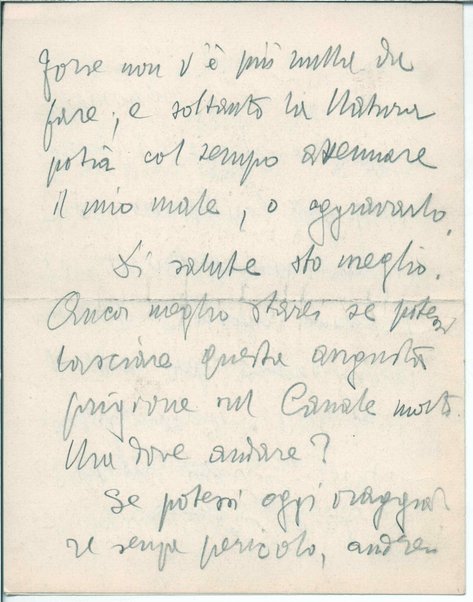 Forse non v'è più nulla da
fare; e soltanto la Natura
potrà col tempo attenuare
il mio male, o aggravarlo.
Di salute sto meglio.
Ancor meglio starei se potessi
lasciare questa angusta
prigione sul Canale morto.
Ma dove andare?
Se potessi oggi viaggia
re senza pericolo, andrei